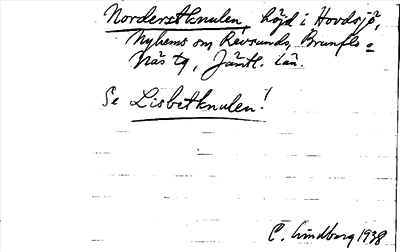 Norderetknulen, höjd i Hovdsjö,
Nyhems sn Revsunds, Brunflo =
Näs tg, Jämtl. län.
Se Lisbetknulen!
C. Lindberg 1938